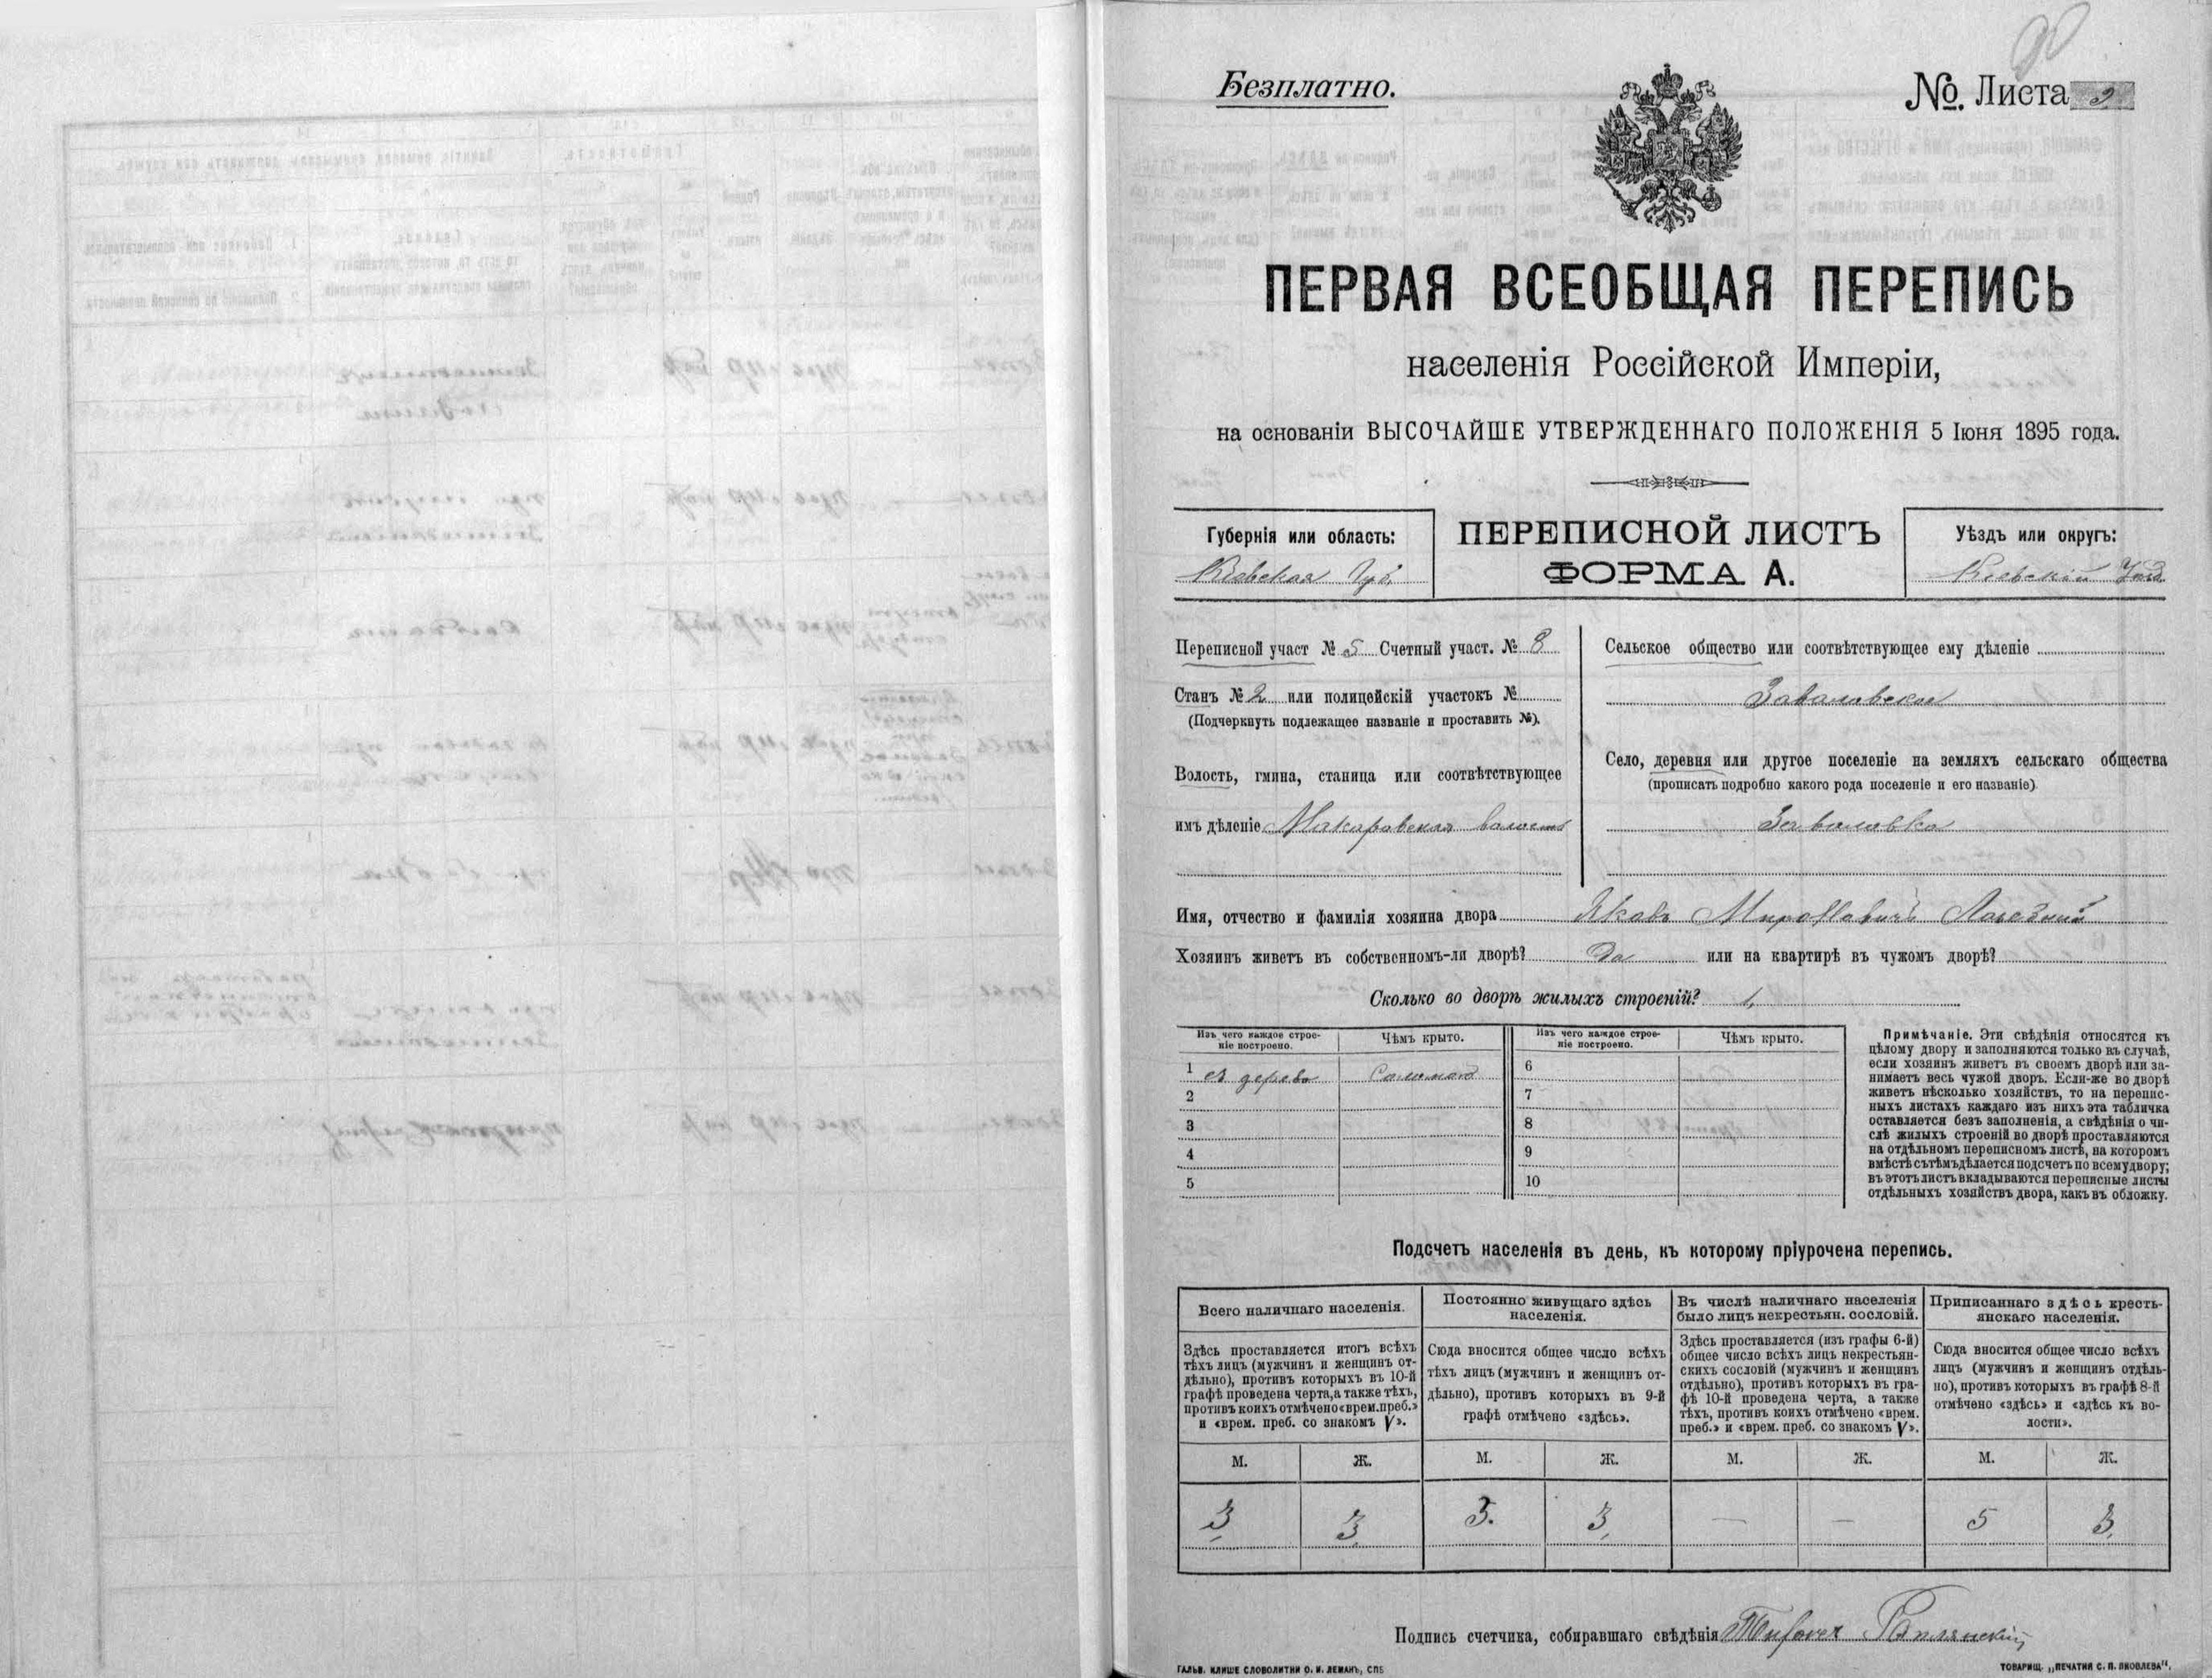 Безплатно.
№. Листа 9
ПЕРВАЯ ВСЕОБЩАЯ ПЕРЕПИСЬ
населенія Россійской Имперіи,
на основаніи ВЫСОЧАЙШЕ УТВЕРЖДЕННАГО ПОЛОЖЕНІЯ 5 Іюня 1895 года.
Губернія или область:
Кіевская Губ.
ПЕРЕПИСНОЙ ЛИСТЪ
ФОРМА А.
Уѣздъ или округъ:
Кіевскій Уѣзд
Переписной участ № 5 Счетный участ. № 8
Станъ № 2 или полицейскій участокъ №
(Подчеркнуть подлежащее названіе и проставить №).
Волость, гмина, станица или соотвѣтствующее
имъ дѣленіе Макаровская волость
Сельское общество или соотвѣтствующее ему дѣленіе
Заваловское
Село, деревня или другое поселеніе на земляхъ сельскаго общества
(прописать подробно какого рода поселеніе и его названіе)
Заваловка
Имя, отчество и фамилія хозяина двора Яковъ Мироновичъ
Хозяинъ живетъ въ собственномъ-ли дворѣ? Да или на квартирѣ въ чужомъ дворѣ?
Сколько во дворѣ жилыхъ строеній? 1,
Изъ чего каждое строе-
ніе построено.
Чѣмъ крыто.
Изъ чего каждое строе-
ніе построено.
Чѣмъ крыто.
1 дерева Соломой 6
2 7
3 8
4 9
5 10
Примѣчаніе. Эти свѣдѣнія относятся къ
цѣлому двору и заполняются только въ случаѣ,
если хозяинъ живетъ въ своемъ дворѣ или за-
нимаетъ весь чужой дворъ. Если-же во дворѣ
живетъ нѣсколько хозяйствъ, то на перепис-
ныхъ листахъ каждаго изъ нихъ эта табличка
оставляется безъ заполненія, а свѣдѣнія о чи-
слѣ жилыхъ строеній во дворѣ проставляются
на отдѣльномъ переписномъ листѣ, на которомъ
вмѣстѣ съ тѣмъ дѣлается подсчетъ по всему двору;
въ этотъ листъ вкладываются переписные листы
отдѣльныхъ хозяйствъ двора, какъ въ обложку.
Подсчетъ населенія въ день, къ которому пріурочена перепись.
Всего наличнаго населенія.
Здѣсь проставляется итогъ всѣхъ
тѣхъ лицъ (мужчинъ и женщинъ от-
дѣльно), противъ которыхъ въ 10-й
графѣ проведена черта, а также тѣхъ,
противъ коихъ отмѣчено «врем. преб.»
и «врем. преб. со знакомъ V».
Постоянно живущаго здѣсь
населенія.
Сюда вносится общее число всѣхъ
тѣхъ лицъ (мужчинъ и женщинъ от-
дѣльно), противъ которыхъ въ 9-й
графѣ отмѣчено «здѣсь».
Въ числѣ наличнаго населенія
было лицъ некрестьян. сословій.
Здѣсь проставляется (изъ графы 6-й)
общее число всѣхъ лицъ некрестьян-
скихъ сословій (мужчинъ и женщинъ
отдѣльно), противъ которыхъ въ гра-
фѣ 10-й проведена черта, а также
тѣхъ, противъ коихъ отмѣчено «врем.
преб.» и «врем. преб. со знакомъ V».
Приписаннаго здѣсь кресть-
янскаго населенія.
Сюда вносится общее число всѣхъ
лицъ (мужчинъ и женщинъ отдѣль-
но), противъ которыхъ въ графѣ 8-й
отмѣчено «здѣсь» и «здѣсь къ во-
лости».
М. Ж. М. Ж. М. Ж. М. Ж.
3 3 3. 3 — — 5 3
Подпись счетчика, собиравшаго свѣдѣнія
ГАЛЬВ. КЛИШЕ СЛОВОЛИТНИ О. И. ЛЕМАНЪ, СПБ
ТОВАРИЩ. „ПЕЧАТНЯ С. П. ЯКОВЛЕВА“.